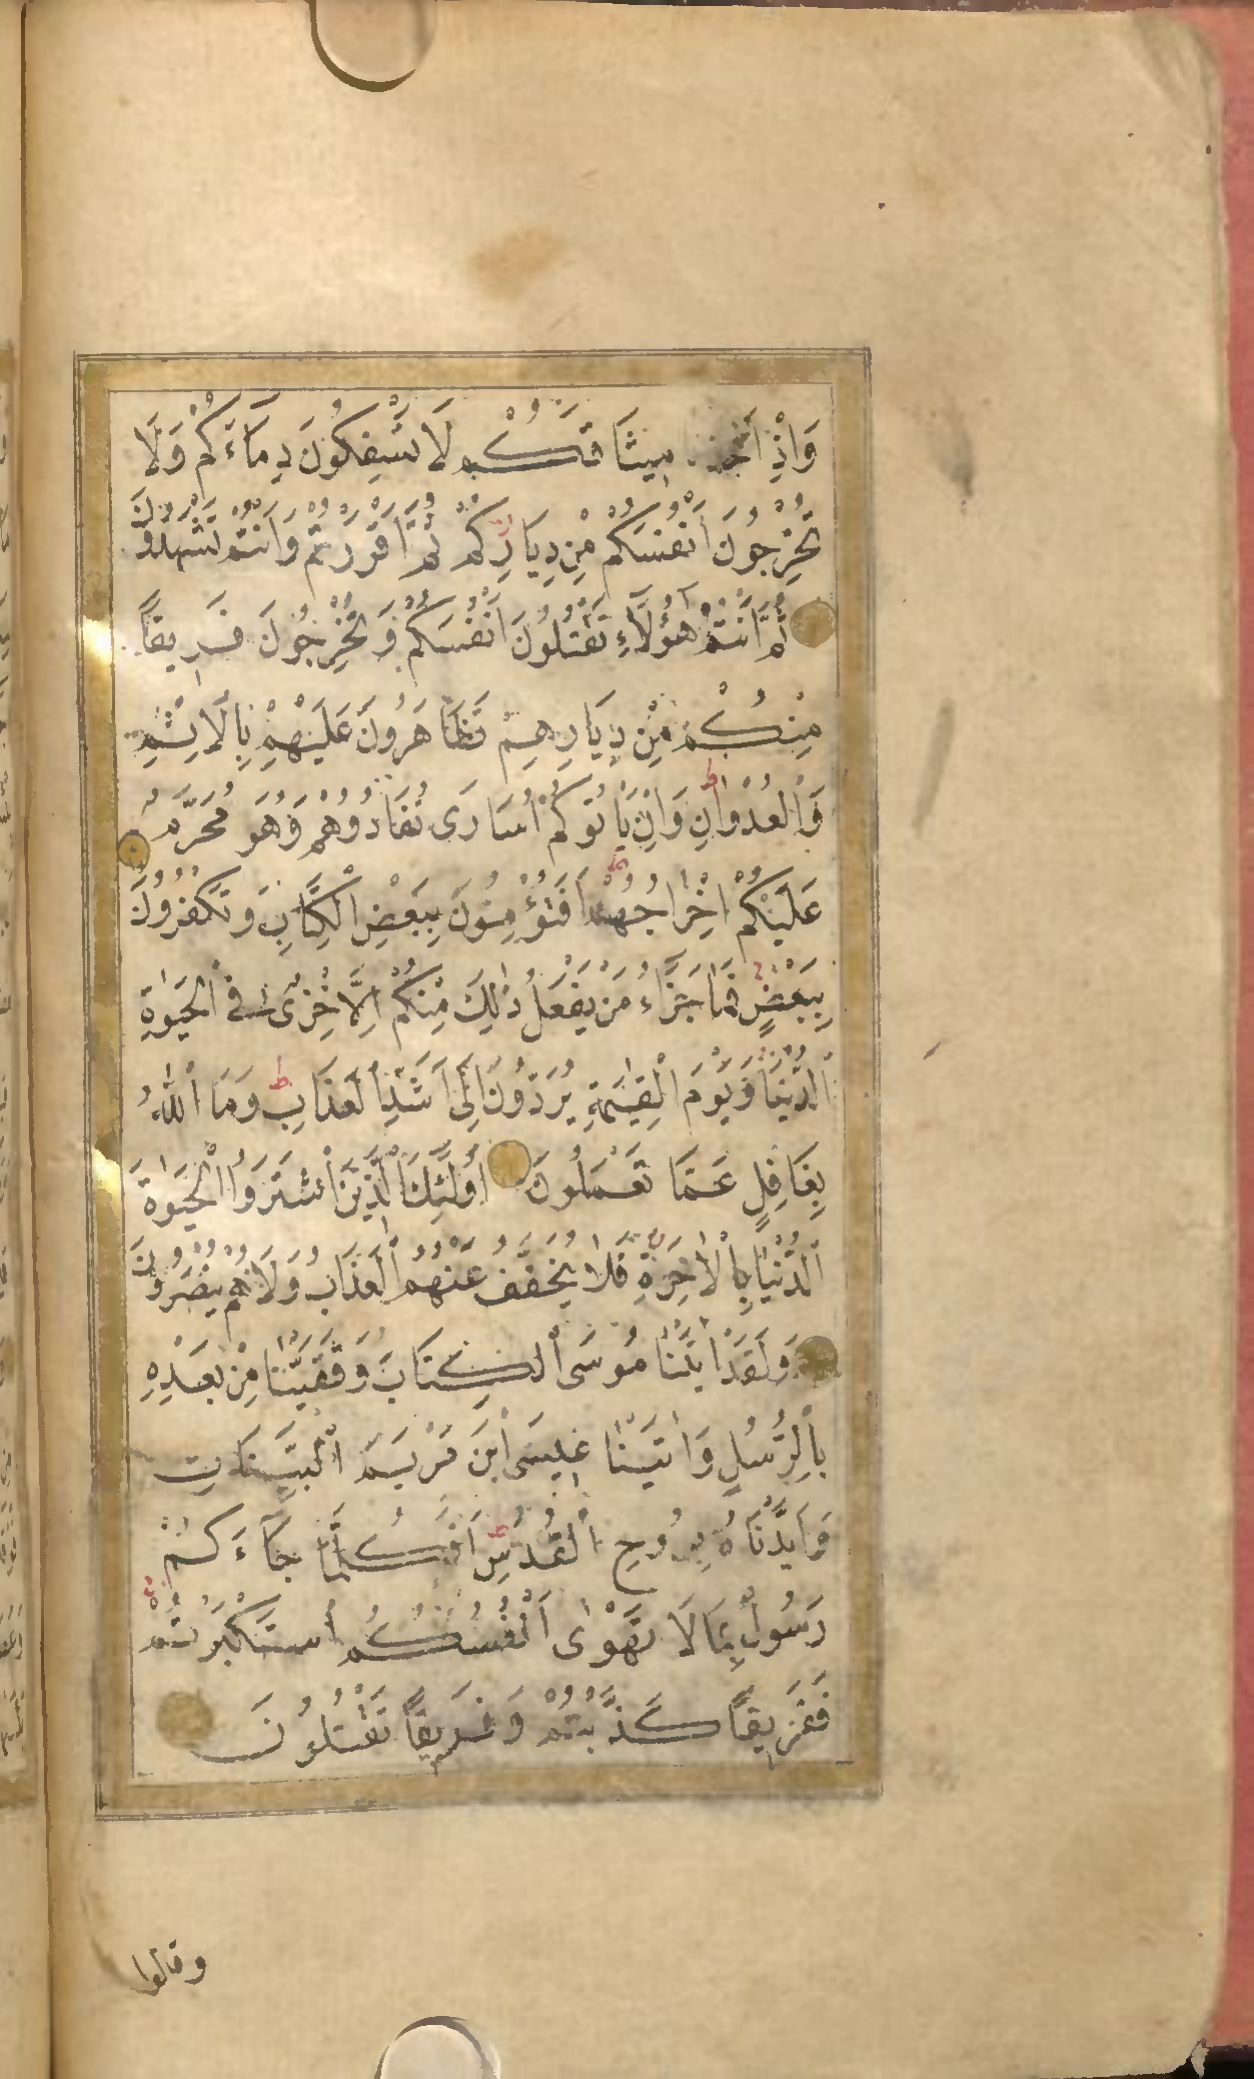 وَاِذْ اَخَذْنَا مِيثَاقَكُمْ لَا تَسْفِكُونَ دِمَآءَكُمْ وَلَا
تُخْرِجُونَ اَنْفُسَكُمْ مِنْ دِيَارِكُمْ ثُمَّ اَقْرَرْتُمْ وَاَنْتُمْ تَشْهَدُونَ
ثُمَّ اَنْتُمْ هٰٓؤُلَآءِ تَقْتُلُونَ اَنْفُسَكُمْ وَتُخْرِجُونَ فَرِيقًا
مِنْكُمْ مِنْ دِيَارِهِمْ تَظَاهَرُونَ عَلَيْهِمْ بِالْاِثْمِ
وَالْعُدْوَانِ ط وَاِنْ يَاْتُوكُمْ اُسَارَى تُفَادُوهُمْ وَهُوَ مُحَرَّمٌ
عَلَيْكُمْ اِخْرَاجُهُمْ اَفَتُؤْمِنُونَ بِبَعْضِ الْكِتَابِ وَتَكْفُرُونَ
بِبَعْضٍ فَمَا جَزَآءُ مَنْ يَفْعَلُ ذٰلِكَ مِنْكُمْ اِلَّا خِزْىٌ فِى الْحَيٰوةِ
الدُّنْيَا وَيَوْمَ الْقِيٰمَةِ يُرَدُّونَ اِلٰٓى اَشَدِّ الْعَذَابِ ط وَمَا اللّٰهُ
بِغَافِلٍ عَمَّا تَعْمَلُونَ اُولٰٓئِكَ الَّذِينَ اشْتَرَوُا الْحَيٰوةَ
الدُّنْيَا بِالْاٰخِرَةِ فَلَا يُخَفَّفُ عَنْهُمُ الْعَذَابُ وَلَا هُمْ يُنْصَرُونَ
وَلَقَدْ اٰتَيْنَا مُوسَى الْكِتَابَ وَقَفَّيْنَا مِنْ بَعْدِهِ
بِالرُّسُلِ وَاٰتَيْنَا عِيسَى ابْنَ مَرْيَمَ الْبَيِّنَاتِ
وَاَيَّدْنَاهُ بِرُوحِ الْقُدُسِ ط اَفَكُلَّمَا جَآءَكُمْ
رَسُولٌ بِمَا لَا تَهْوٰى اَنْفُسُكُمُ اسْتَكْبَرْتُمْ
فَفَرِيقًا كَذَّبْتُمْ وَفَرِيقًا تَقْتُلُونَ
وقالوا